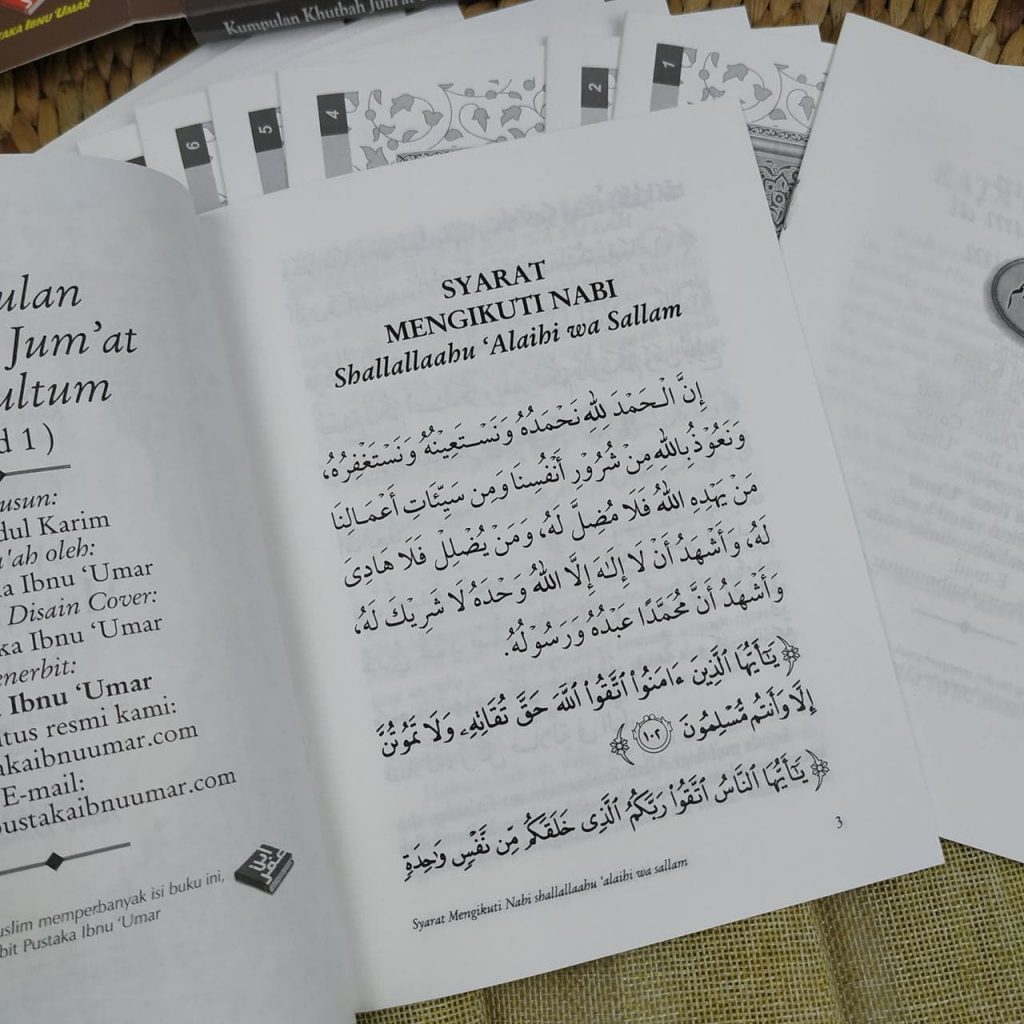 PUSTAKA IBNU 'UMAR
Kumpulan Khutbah Jum'at
6
5
4
2
1
Jum'at
d 1 )
dul Karim
oleh:
Ibnu 'Umar
Disain Cover:
Ibnu 'Umar
Ibnu 'Umar
resmi kami:
akaibnuumar.com
E-mail:
pustakaibnuumar.com
memperbanyak isi buku ini,
Pustaka Ibnu 'Umar
SYARAT
MENGIKUTI NABI
Shallallaahu 'Alaihi wa Sallam
إِنَّ الْحَمْدَ لِلَّهِ نَحْمَدُهُ وَنَسْتَعِينُهُ وَنَسْتَغْفِرُهُ،
وَنَعُوْذُ بِاللهِ مِنْ شُرُوْرِ أَنْفُسِنَا وَمِن سَيِّئَاتِ أَعْمَالِنَا
مَنْ يَهْدِهِ اللهُ فَلَا مُضِلَّ لَهُ، وَمَنْ يُضْلِلْ فَلَا هَادِىَ
لَهُ، وَأَشْهَدُ أَنْ لَا إِلَهَ إِلَّا اللهُ وَحْدَهُ لَا شَرِيْكَ لَهُ،
وَأَشْهَدُ أَنَّ مُحَمَّدًا عَبْدُهُ وَرَسُوْلُهُ.
﴿ يَـٰٓأَيُّهَا ٱلَّذِينَ ءَامَنُوا۟ ٱتَّقُوا۟ ٱللَّهَ حَقَّ تُقَاتِهِۦ وَلَا تَمُوتُنَّ
إِلَّا وَأَنتُم مُّسْلِمُونَ ١٠٢ ﴾
﴿ يَـٰٓأَيُّهَا ٱلنَّاسُ ٱتَّقُوا۟ رَبَّكُمُ ٱلَّذِى خَلَقَكُم مِّن نَّفْسٍ وَٰحِدَةٍ
3
Syarat Mengikuti Nabi shallallaahu 'alaihi wa sallam